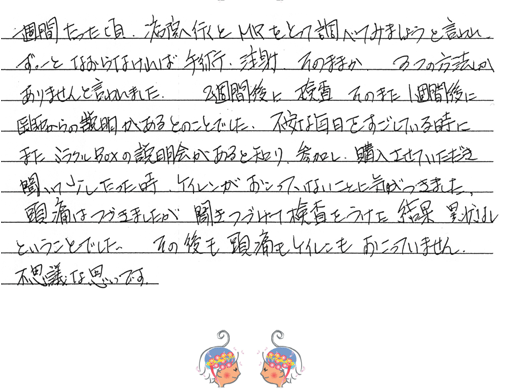 週間たった頃、病院へ行くとMRをとって調べてみましょうと言われ、
ずっとなおらなければ手術、注射、そのままか 3つの方法しか
ありませんと言われました。 2週間後に検査 そのまた1週間後に
医師からの説明があるとのことでした。不安な毎日をすごしている時に
またミラクルBoxの説明会があると知り、参加し、購入させていただき
聞いて少したった時、ケイレンがおこっていないことに気がつきました。
頭痛はつづきましたが 聞きつづけて検査をうけた結果 異状なし
ということでした。 その後も頭痛もケイレンも おこっていません。
不思議な思いです。